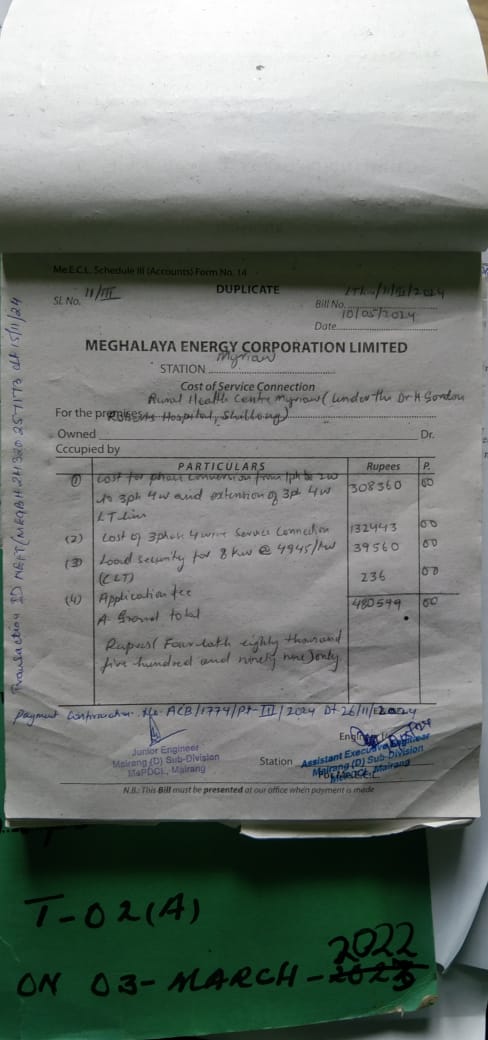 Me.E.C.L. Schedule III (Accounts) Form No. 14
DUPLICATE
SL No. 11/III
Bill No.
10/05/2024
Date
MEGHALAYA ENERGY CORPORATION LIMITED
STATION Myriaw
Cost of Service Connection
Rural Health Centre Myriaw (under the Dr H Gordon
For the premises Roberts Hospital, Shillong)
Owned Dr.
Occupied by
PARTICULARS Rupees P.
(1) Cost for phase conversion from 1ph 2w
to 3ph 4w and extention of 3ph 4w 308360 00
LT line
(2) Cost of 3phase 4 wire Service Connection 132443 00
(3) Load security for 8 kW @ 4945/kW 39560 00
(CLT)
(4) Application fee 236 00
A Grand total 480599 00
Rupees (Four lakh eighty thousand
five hundred and ninety nine) only
Payment Confirmation No. ACB/1774/Pt-III/2024 Dt 26/11/2024
Junior Engineer
Mairang (D) Sub-Division
MePDCL, Mairang
Station
Assistant Executive Engineer
Mairang (D) Sub-Division
MePDCL, Mairang
N.B.: This Bill must be presented at our office when payment is made
Transaction ID NEFT dt 15/11/24
T-02(A)
2022
ON 03-MARCH-